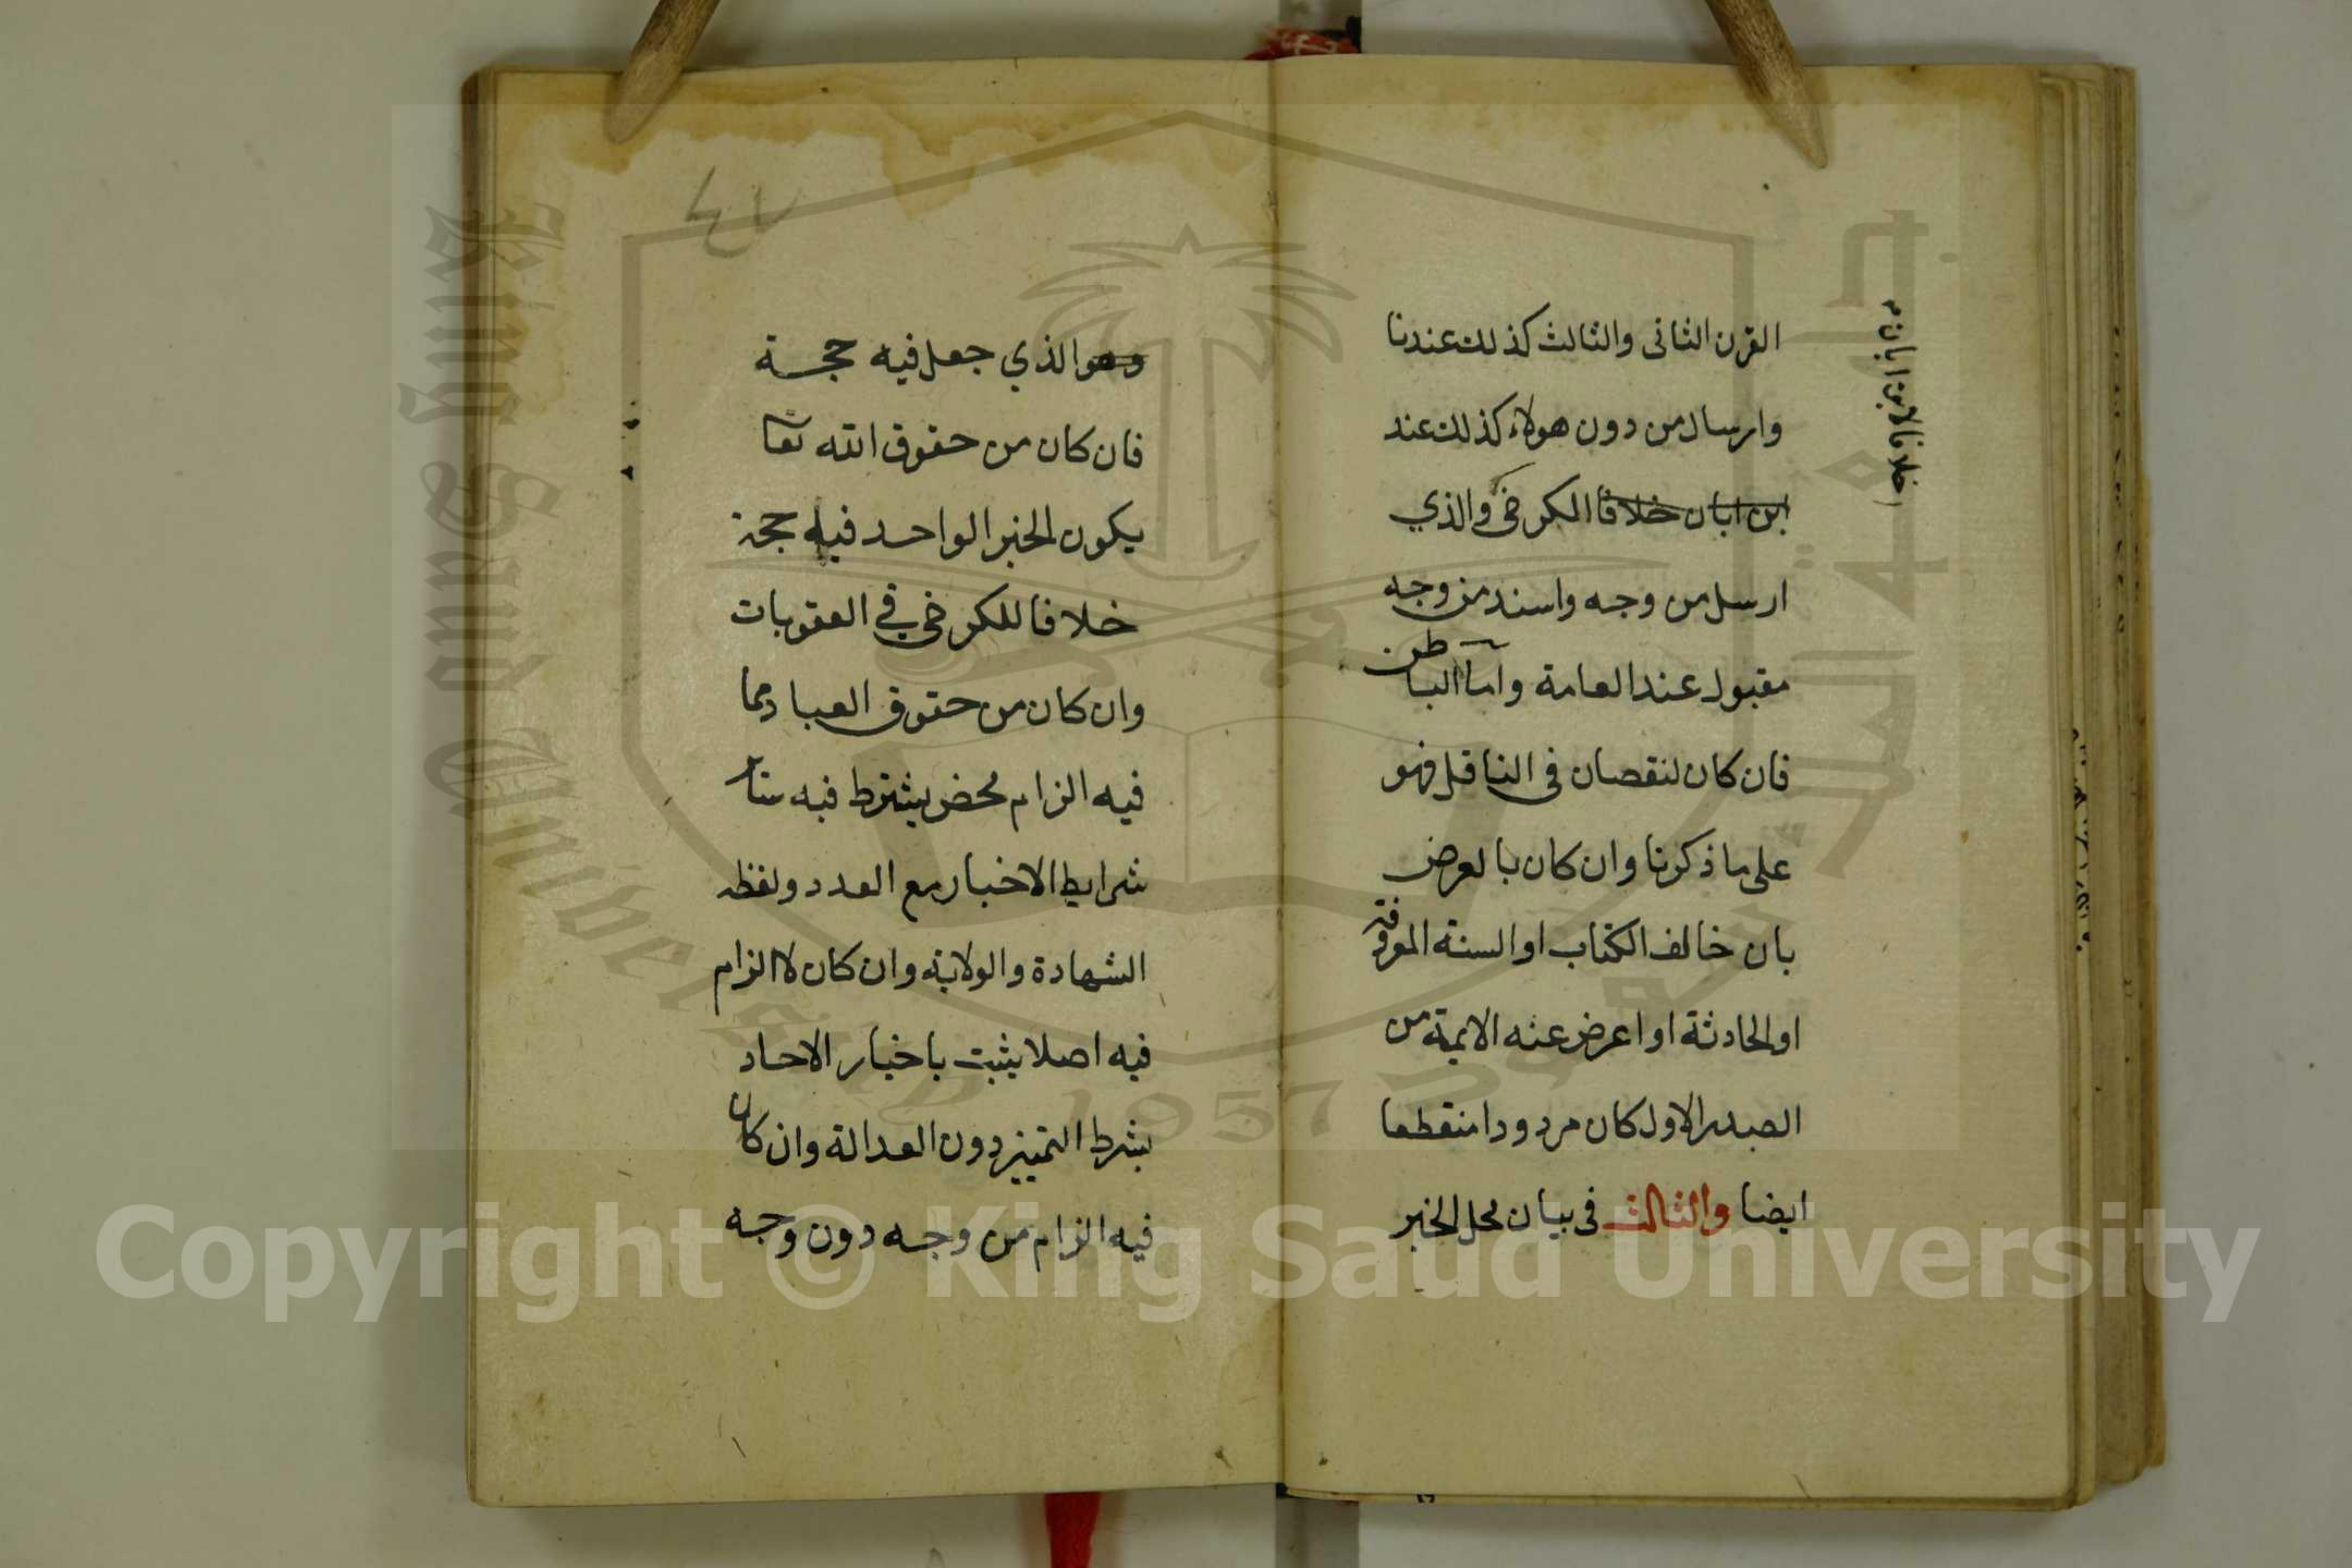 القرن الثانى والثالث كذلك عندنا
وارسال من دون هولاء كذلك عند
ابن ابان خلافا الكرخى والذي
خلافا لابن ابان
ارسل من وجه واسند من وجه
مقبول عند العامة واما الباطن
فان كان لنقصان فى الناقل فهو
على ما ذكرنا وان كان بالعرض
بان خالف الكتاب او السنة المعروفة
او الحادثة او اعرض عنه الايمة من
الصدر الاول كان مردودا منقطعا
ايضا والثالث فى بيان محل الخبر
٤٧
وهو الذي جعل فيه حجة
فان كان من حقوق الله تعا
يكون الخبر الواحد فيه حجة
خلافا للكرخى فى العقوبات
وان كان من حقوق العباد مما
فيه الزام محض يشترط فيه سائر
شرايط الاخبار مع العدد ولفظه
الشهادة والولاية وان كان لا الزام
فيه اصلا يثبت باخبار الاحاد
بشرط التمييز دون العدالة وان كان
فيه الزام من وجه دون وجه
King Saud University
1957
Copyright © King Saud University